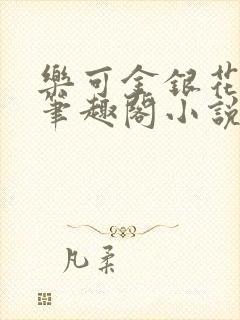 樂可金銀花
筆趣閣小說
凡柔